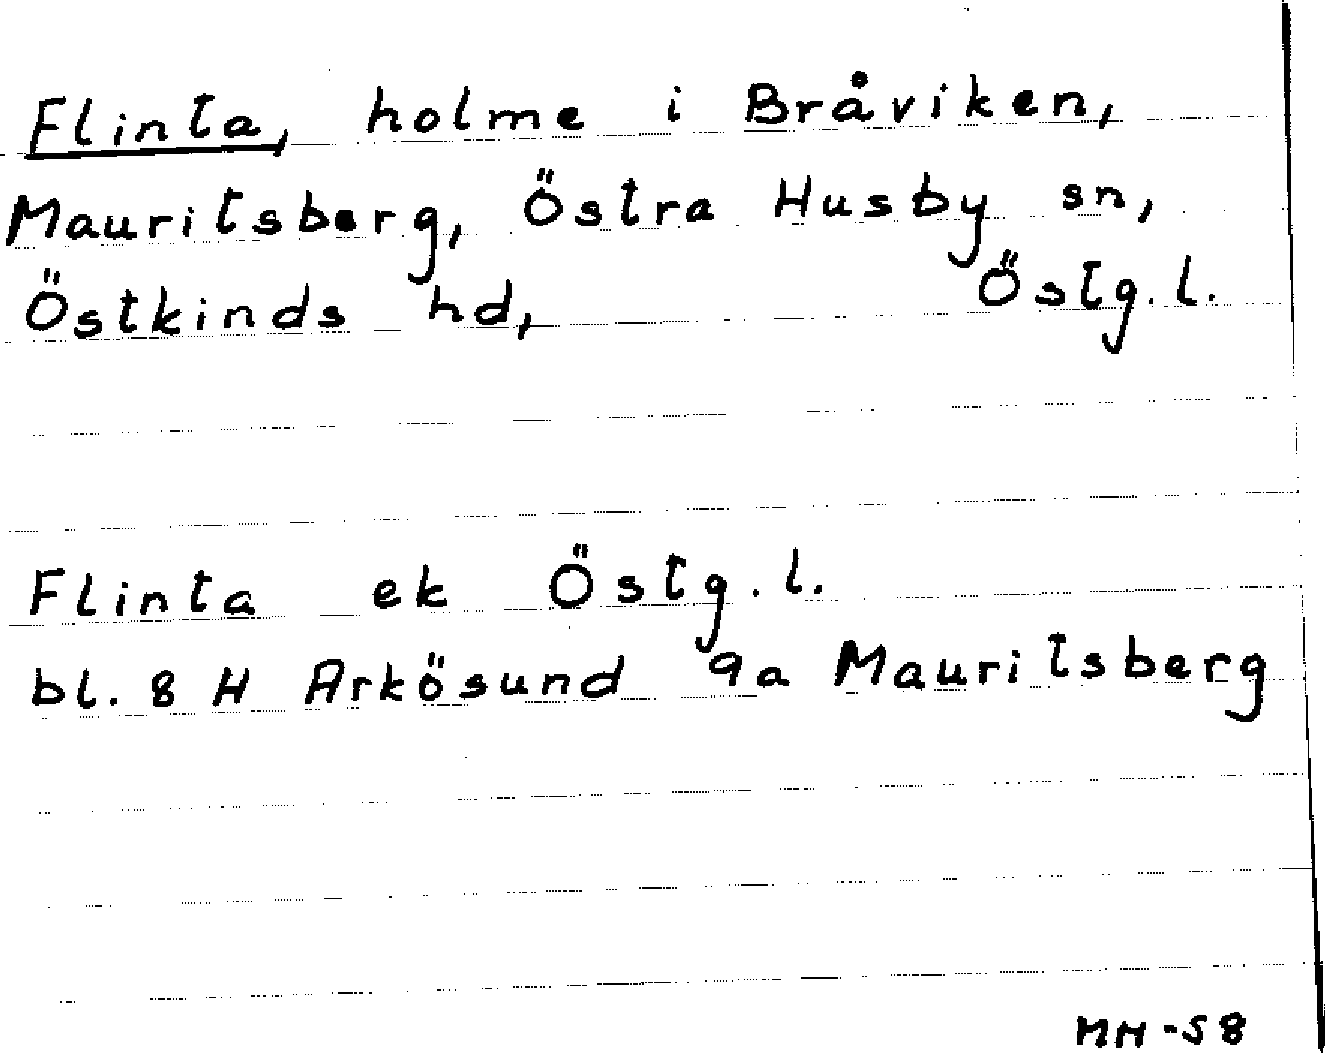 Flinta, holme i Bråviken,
Mauritsberg, Östra Husby sn,
Östkinds hd, Östg.l.
Flinta ek Östg.l.
bl. 8 H Arkösund 9a Mauritsberg
MM-58